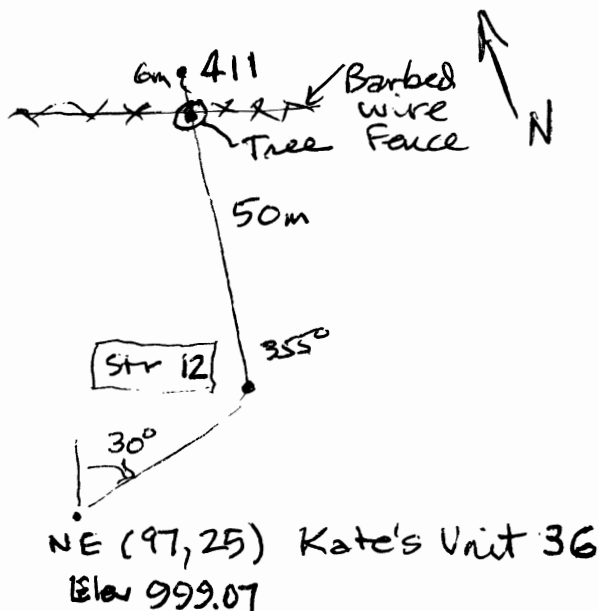 6m 411
Barbed
wire
Fence
Tree
N
50m
355°
Str 12
30°
NE (97,25) Kate's Unit 36
Elev 999.07